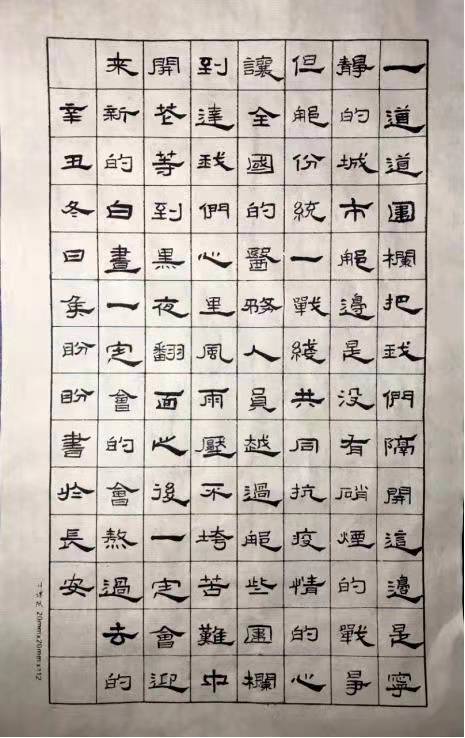 一道道圍欄把我們隔開這邊是寧
靜的城市那邊是没有硝煙的戰爭
但那份統一戰綫共同抗疫情的心
讓全國的醫務人員越過那些圍欄
到達我們心里風雨壓不垮苦難中
開花等到黑夜翻面之後一定會迎
來新的白晝一定會的會熬過去的
辛丑冬日集盼盼書於長安
20mmx20mmx112